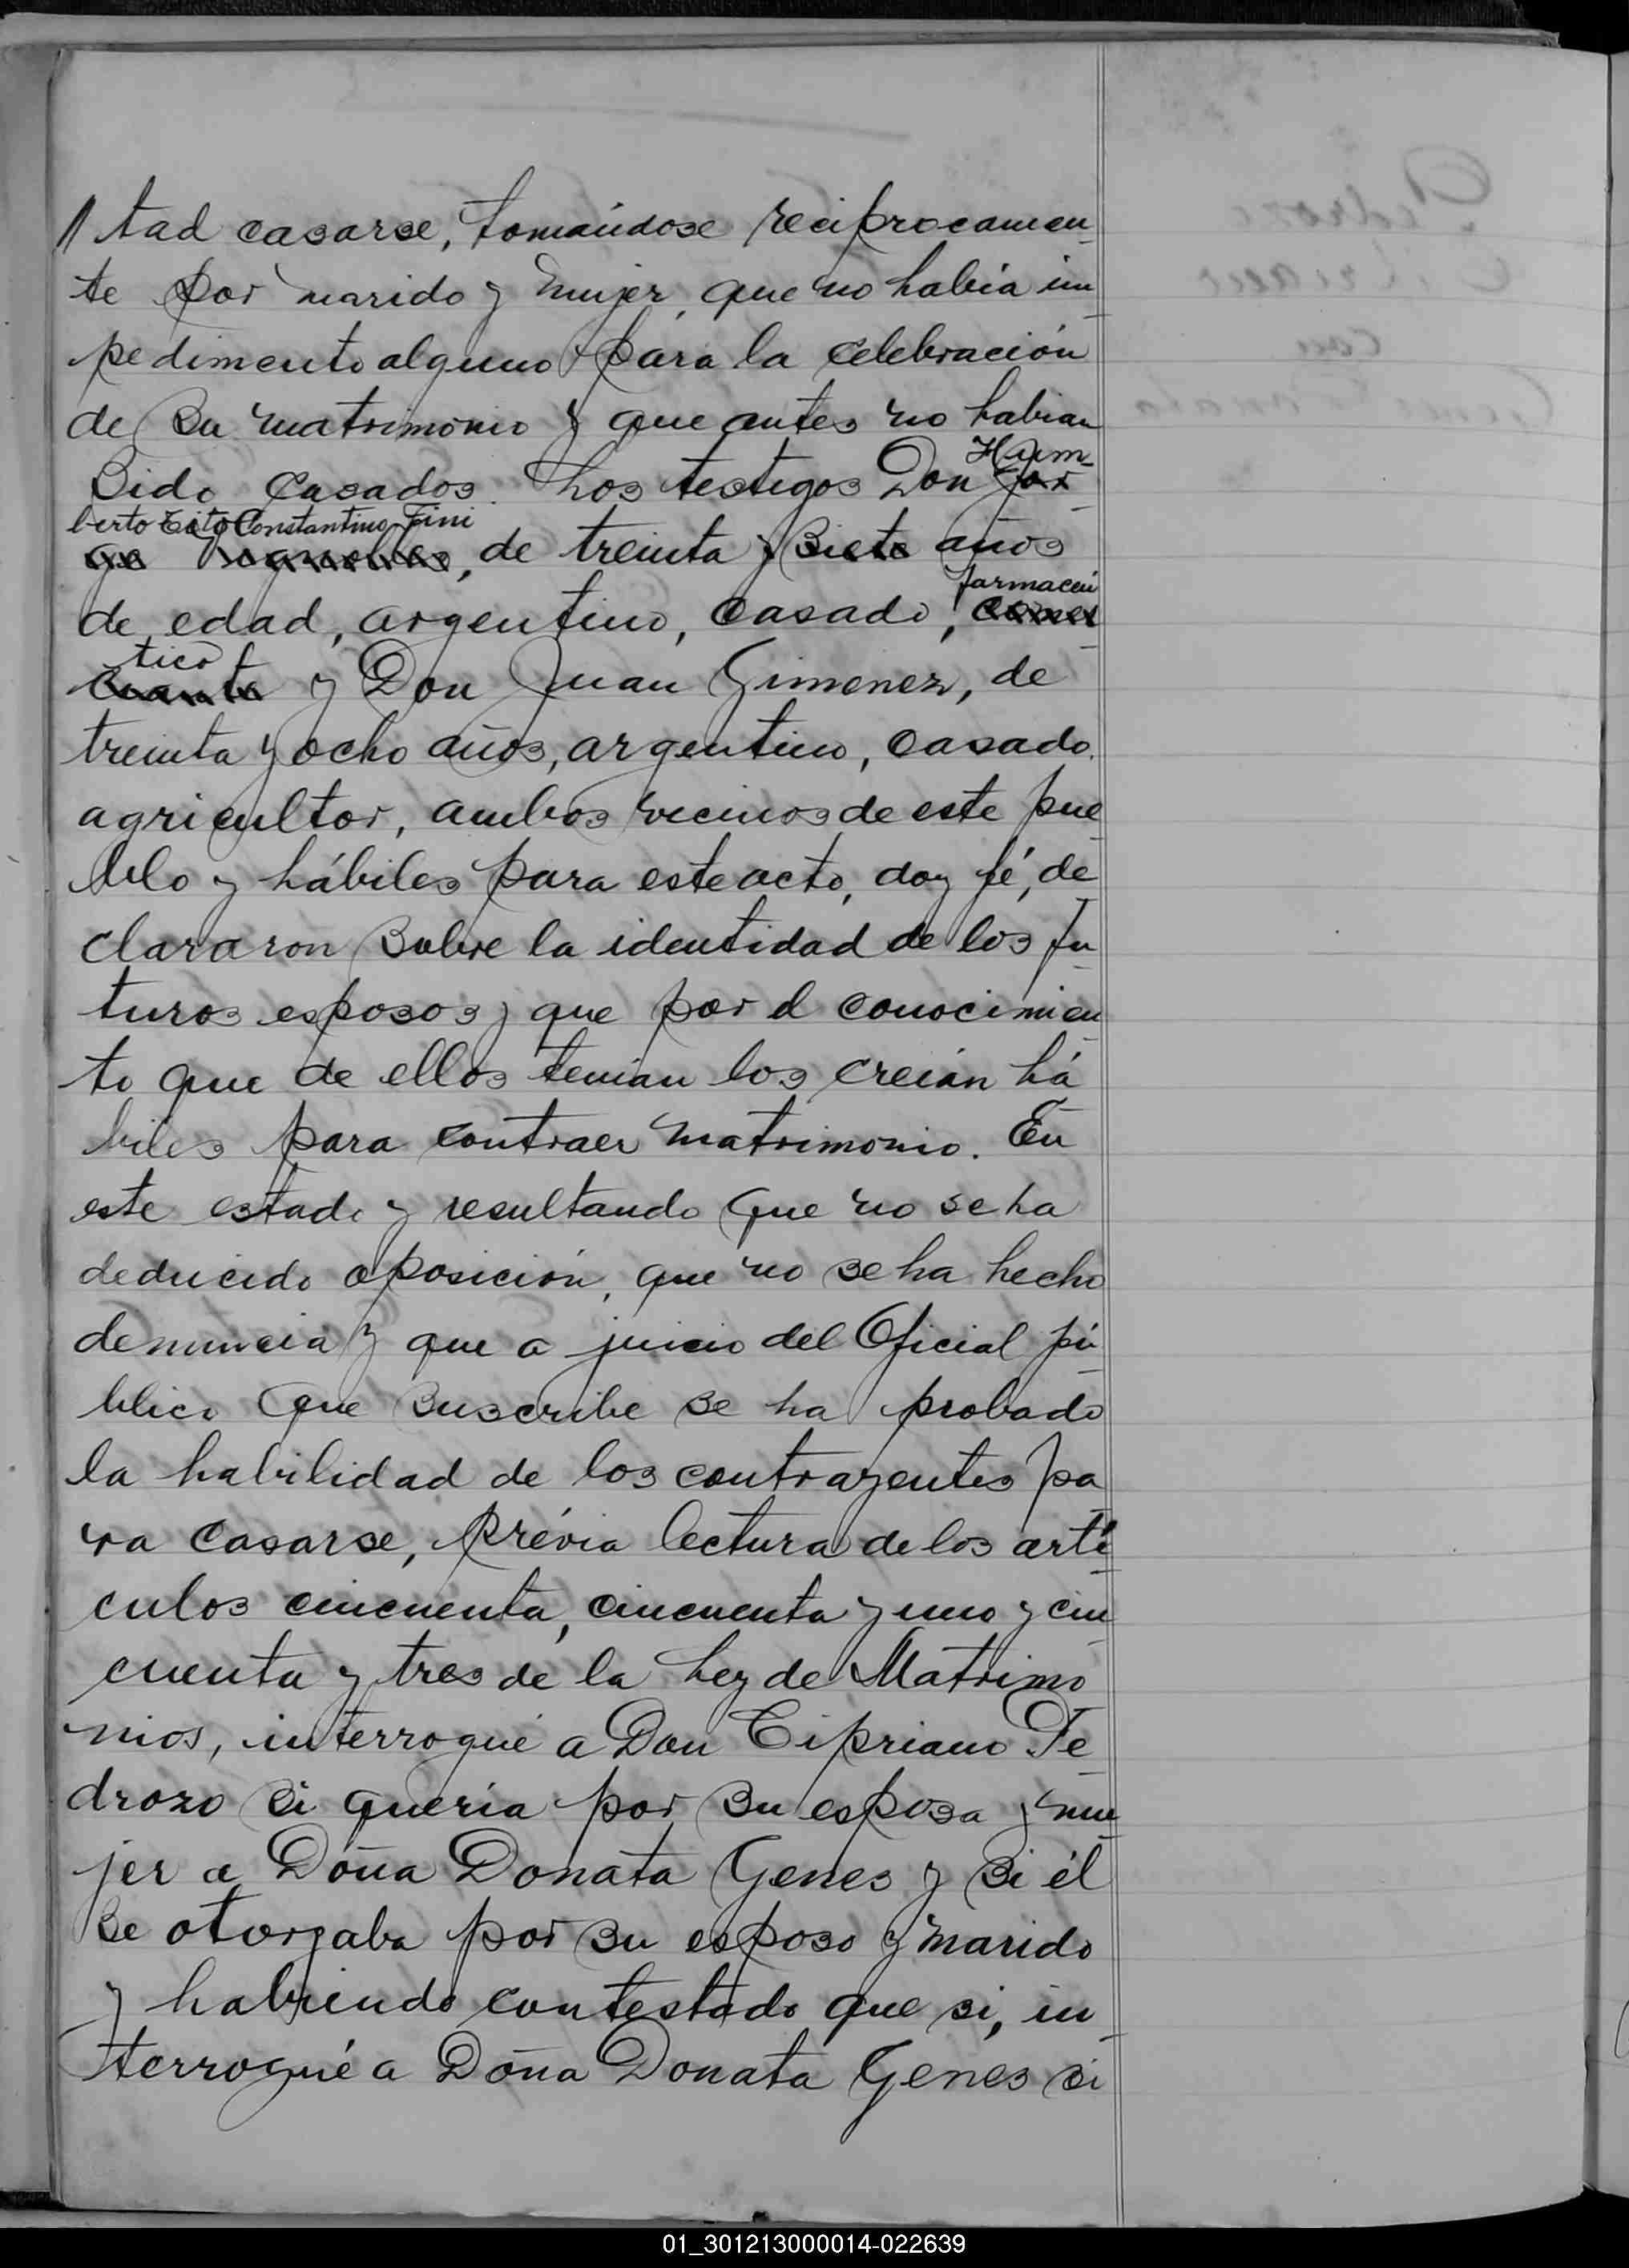 // tad casarse, tomándose reciprocamen-
te por marido y mujer, que no habia im-
pedimento alguno para la celebración
de su matrimonio y que antes no habian
Hum-
sido casados. Los testigos Don Jor
berto Tito Constantino Fini
ge, de treinta y siete años
farmaceú
de edad, argentino, casado, comer
tico
ciante y Don Juan Gimenez, de
treinta y ocho años, argentino, casado.
agricultor, ambos vecinos de este pue-
blo y hábiles para este acto, doy fé, de-
clararon sobre la identidad de los fu-
turos esposos y que por el conocimien-
to que de ellos tenian los creían há-
biles para contraer matrimonio. En
este estado y resultando que no se ha
deducido oposición, que no se ha hecho
denuncia y que a juicio del Oficial pú-
blico que suscribe se ha probado
la habilidad de los contrayentes pa-
ra casarse, prévia lectura de los artí-
culos cincuenta, cincuenta y uno y cin-
cuenta y tres de la Ley de Matrimo
nios, interrogué a Don Cipriano Pe-
drozo si quería por su esposa y mu-
jer a Doña Donata Genes y si él
se otorgaba por su esposo y marido
y habiendo contestado que si, in-
terrogué a Doña Donata Genes si
Pedrozo
Cipriano
con
Genes Donata
01_301213000014-022639